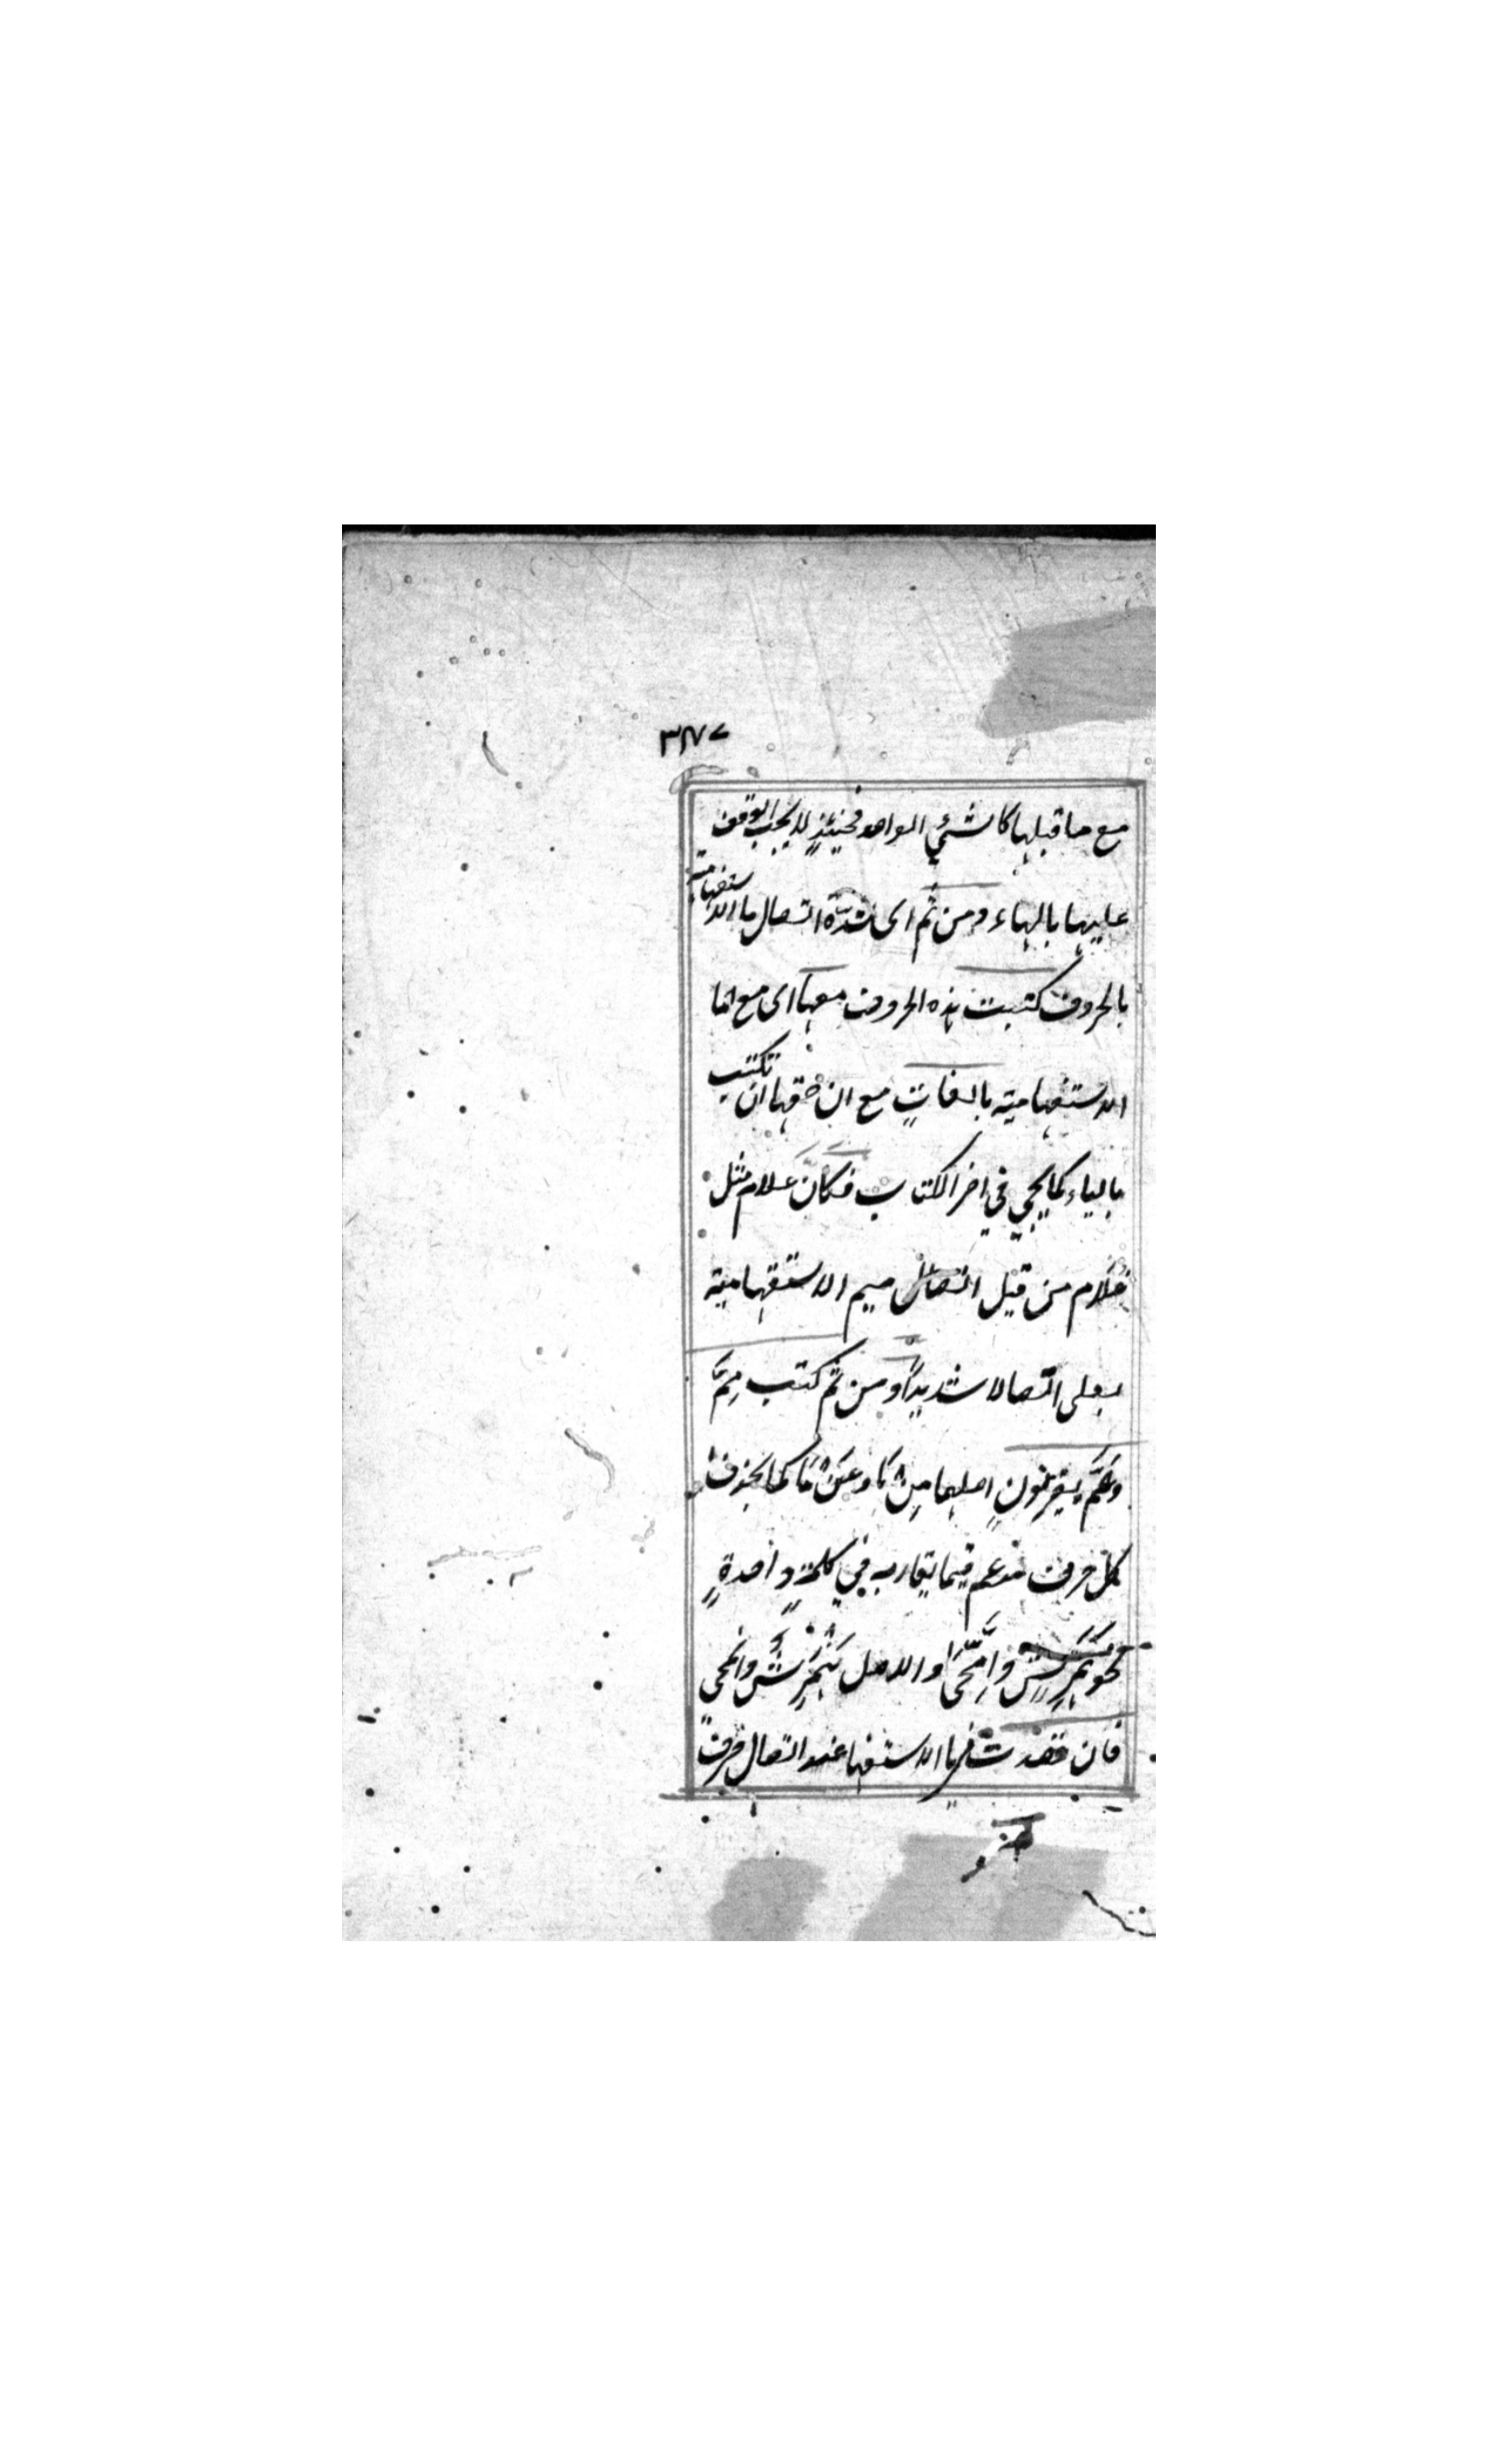 ٣٨٧
مع ما قبلها كالشئي الواحد فحينئذٍ لا يجب الوقف
عليها بالهاء ومن ثم اى شدّة اتصال ما الاستفهامية
بالحروف كتبت هذه الحروف معها اى مع ما
الاستفهامية بالفاتٍ مع ان حقها ان تكتب
بالياء كما يجي في اخر الكتاب فكانّ علام مثل
غلام من قبل اتصال ميم الاستفهامية
بعلى اتصالا شديداً ومن ثم كتب مِمَّ
وعَمَّ بغير نونٍ اصلهما مِنْ مَا وعَنْ مَا كما يحذف
كل حرف مدغم فيما يقارب في كلمةٍ واحدةٍ
نحو هَمَّرِشٍ وَاِمَّحَىٰ والاصل هَنْمَرِشٌ وانمحى
فان قصدت
عند اتصال حرف